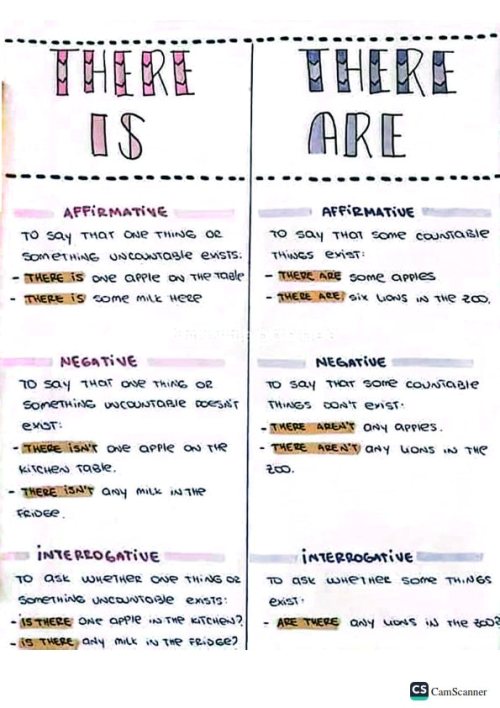 THERE
IS
AFFIRMATIVE
TO SAY THAT ONE THING OR
SOMETHING UNCOUNTABLE EXISTS:
- THERE IS ONE APPLE ON THE TABLE
- THERE IS SOME MILK HERE
NEGATIVE
TO SAY THAT ONE THING OR
SOMETHING UNCOUNTABLE DOESN'T
EXIST:
- THERE ISN'T ONE APPLE ON THE
KITCHEN TABLE.
- THERE ISN'T ANY MILK IN THE
FRIDGE.
INTERROGATIVE
TO ASK WHETHER ONE THING OR
SOMETHING UNCOUNTABLE EXISTS:
- IS THERE ONE APPLE IN THE KITCHEN?
- IS THERE ANY MILK IN THE FRIDGE?
THERE
ARE
AFFIRMATIVE
TO SAY THAT SOME COUNTABLE
THINGS EXIST:
- THERE ARE SOME APPLES
- THERE ARE SIX LIONS IN THE ZOO.
NEGATIVE
TO SAY THAT SOME COUNTABLE
THINGS DON'T EXIST.
- THERE AREN'T ANY APPLES.
- THERE AREN'T ANY LIONS IN THE
ZOO.
INTERROGATIVE
TO ASK WHETHER SOME THINGS
EXIST:
- ARE THERE ANY LIONS IN THE ZOO?
CS CamScanner